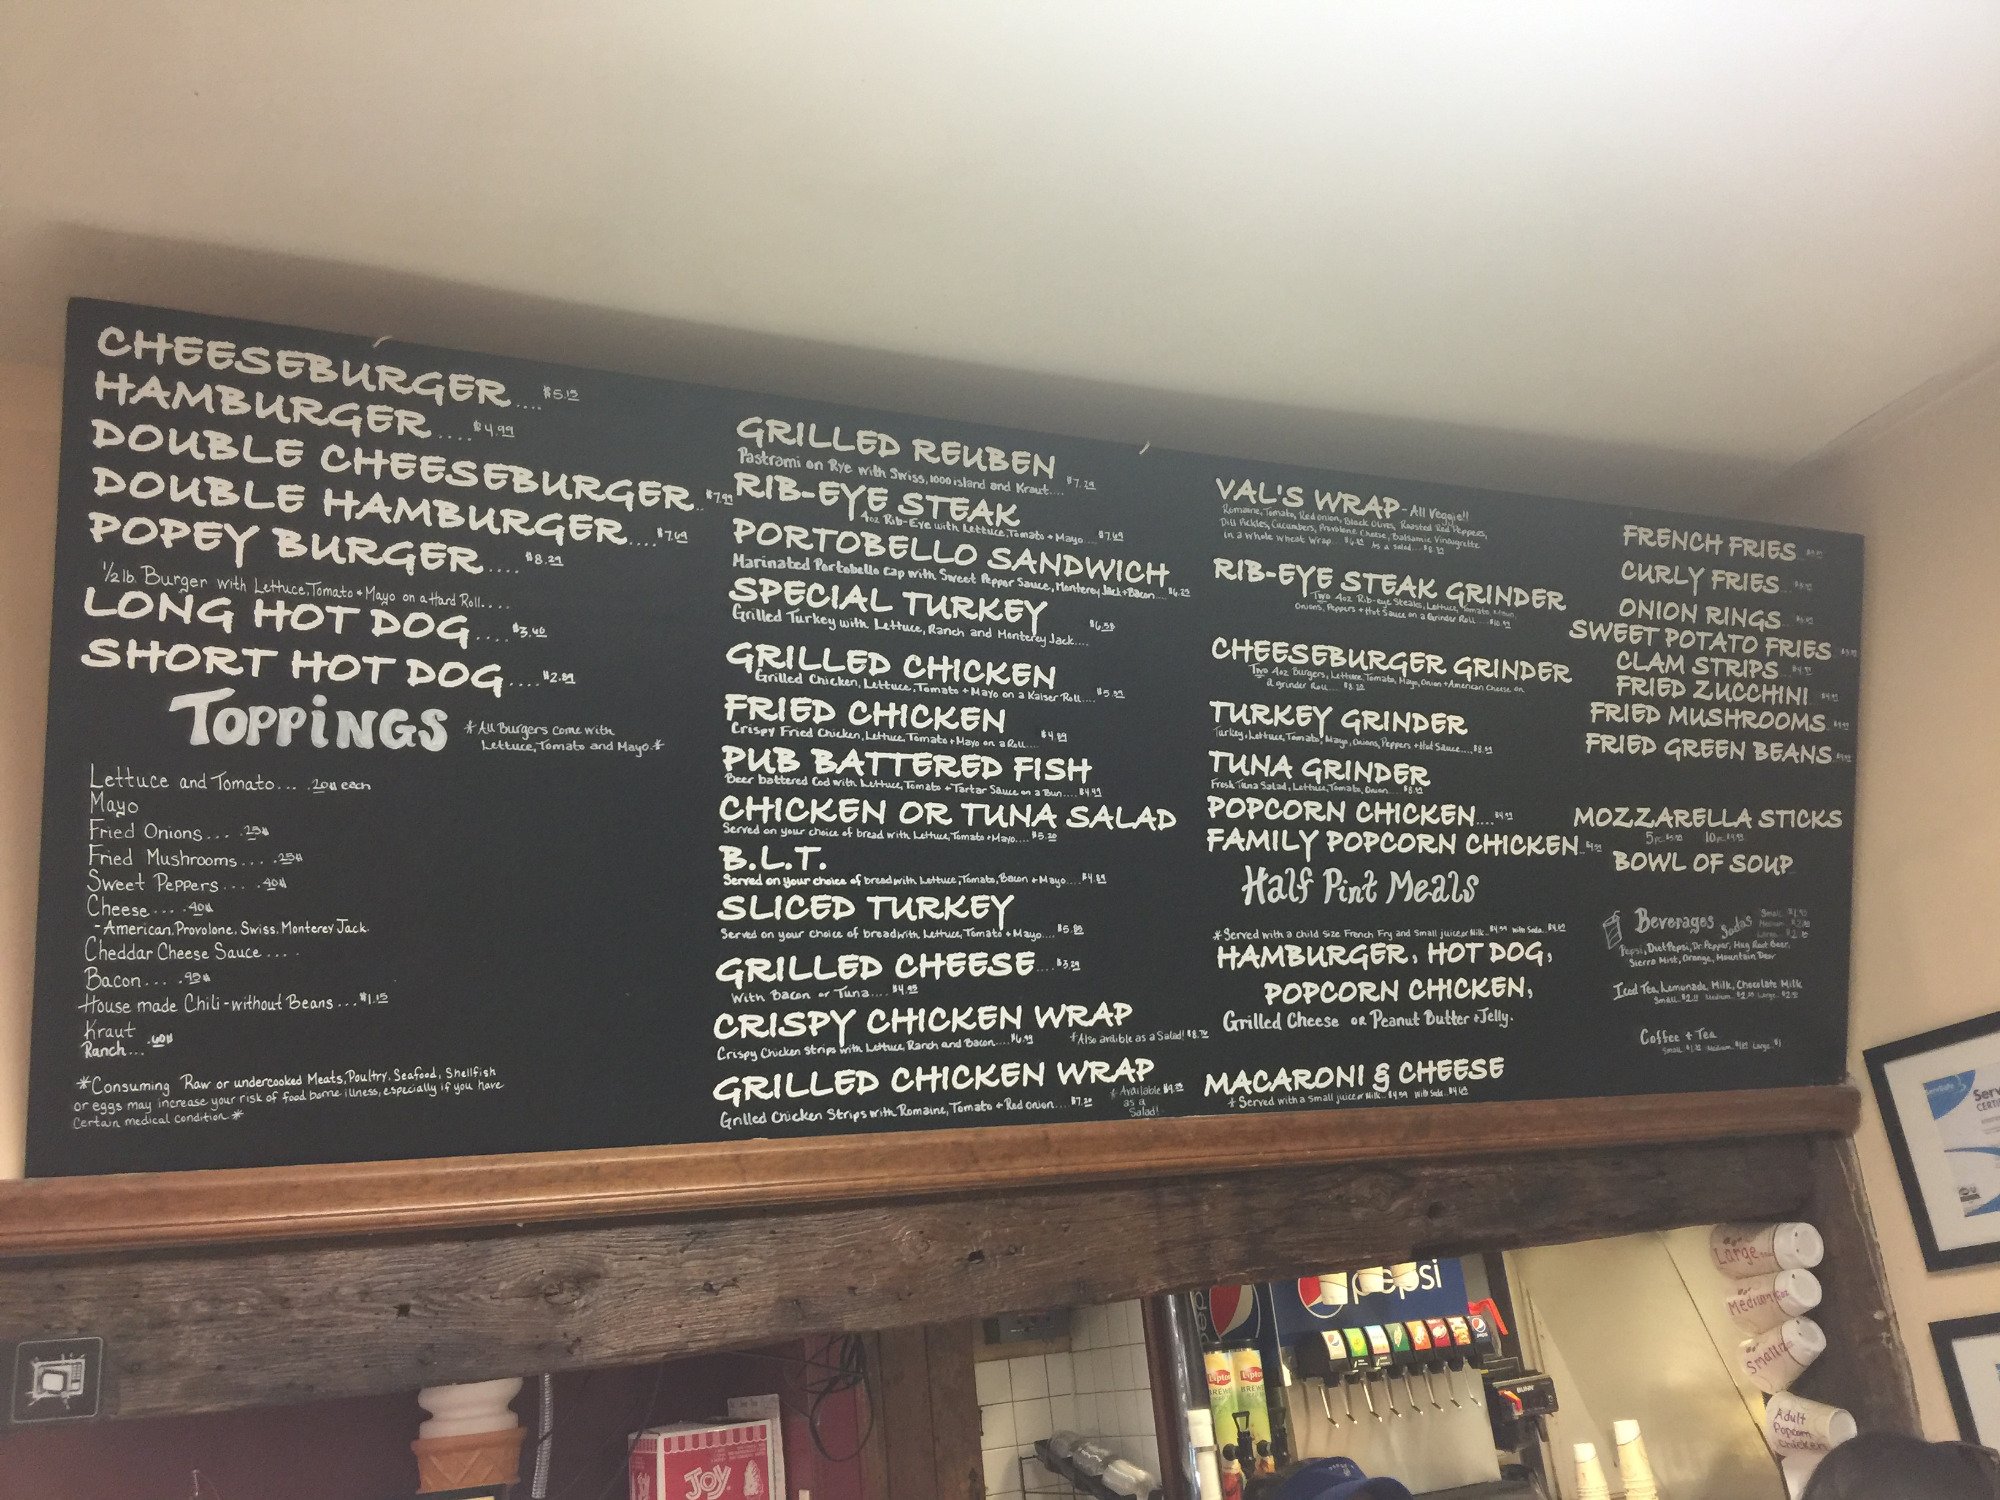 CHEESEBURGER.... $5.15
HAMBURGER.... $4.99
DOUBLE CHEESEBURGER.. $7.99
DOUBLE HAMBURGER.... $7.69
POPEY BURGER.... $8.29
1/2 lb. Burger with Lettuce, Tomato + Mayo on a Hard Roll....
LONG HOT DOG.... $3.40
SHORT HOT DOG.... $2.89
TOPPiNGS
*All Burgers come with
Lettuce, Tomato and Mayo.*
Lettuce and Tomato... .20¢ each
Mayo
Fried Onions.... .25¢
Fried Mushrooms.... .25¢
Sweet Peppers.... .40¢
Cheese.... .40¢
-American, Provolone, Swiss, Monterey Jack.
Cheddar Cheese Sauce....
Bacon.... .95¢
House made Chili-without Beans...$1.15
Kraut
Ranch... .60¢
*Consuming Raw or undercooked Meats, Poultry, Seafood, Shellfish
or eggs may increase your risk of food borne illness, especially if you have
Certain medical condition*
GRILLED REUBEN
Pastrami on Rye with Swiss, 1000 island and Kraut.... $7.29
RIB-EYE STEAK
4oz Rib-Eye with Lettuce, Tomato + Mayo.... $7.69
PORTOBELLO SANDWICH
Marinated Portobello Cap with Sweet Pepper Sauce, Monterey Jack + Bacon.... $6.29
SPECIAL TURKEY
Grilled Turkey with Lettuce, Ranch and Monterey Jack.... $6.58
GRILLED CHICKEN
Grilled Chicken, Lettuce, Tomato + Mayo on a Kaiser Roll....
FRIED CHICKEN
Crispy Fried Chicken, Lettuce, Tomato + Mayo on a Roll.... $4.89
PUB BATTERED FISH
Beer battered Cod with Lettuce, Tomato + Tartar Sauce on a Bun.... $4.99
CHICKEN OR TUNA SALAD
Served on your choice of bread with Lettuce, Tomato + Mayo.... $5.20
B.L.T.
Served on your choice of bread with Lettuce, Tomato, Bacon + Mayo.... $4.89
SLICED TURKEY
Served on your choice of bread with Lettuce, Tomato + Mayo....
GRILLED CHEESE...$3.29
With Bacon or Tuna....
CRISPY CHICKEN WRAP
Crispy Chicken Strips with Lettuce, Ranch and Bacon.... $6.99 *Also avaible as a Salad!
GRILLED CHICKEN WRAP
Grilled Chicken Strips with Romaine, Tomato + Red onion.... $7.20
*Available
as a
Salad!
VAL'S WRAP - All Veggie!!
Romaine, Tomato, Red onion, Black Olives, Roasted Red Peppers,
Dill Pickles, Cucumbers, Provolone Cheese, Balsamic Vinaugrette
in a Whole Wheat Wrap... As a Salad...
RIB-EYE STEAK GRINDER
Two 4oz Rib-eye Steaks, Lettuce, Tomato
Onions, Peppers + Hot Sauce on a Grinder Roll...
CHEESEBURGER GRINDER
Two 4oz Burgers, Lettuce, Tomato, Mayo, Onion + American Cheese on
a grinder Roll...
TURKEY GRINDER
Turkey, Lettuce, Tomato, Mayo, Onions, Peppers + Hot Sauce....
TUNA GRINDER
Fresh Tuna Salad, Lettuce, Tomato, Onion...
POPCORN CHICKEN....
FAMILY POPCORN CHICKEN..
Half Pint Meals
*Served with a Child Size French Fry and Small juice or Milk..
HAMBURGER, HOT DOG,
POPCORN CHICKEN,
Grilled Cheese OR Peanut Butter + Jelly.
MACARONI & CHEESE
*Served with a Small juice or Milk...
FRENCH FRIES
CURLY FRIES
ONION RINGS
SWEET POTATO FRIES
CLAM STRIPS
FRIED ZUCCHINI
FRIED MUSHROOMS
FRIED GREEN BEANS
MOZZARELLA STICKS
5pc. 10pc.
BOWL OF SOUP
Beverages
Sodas
Pepsi, Diet Pepsi, Dr. Pepper, Mug Root Beer,
Sierra Mist, Orange, Mountain Dew
Iced Tea, Lemonade, Milk, Chocolate Milk
Coffee + Tea
pepsi
Lipton
Lipton
JOY
Large
Medium
Small
Adult
Popcorn
Chicken